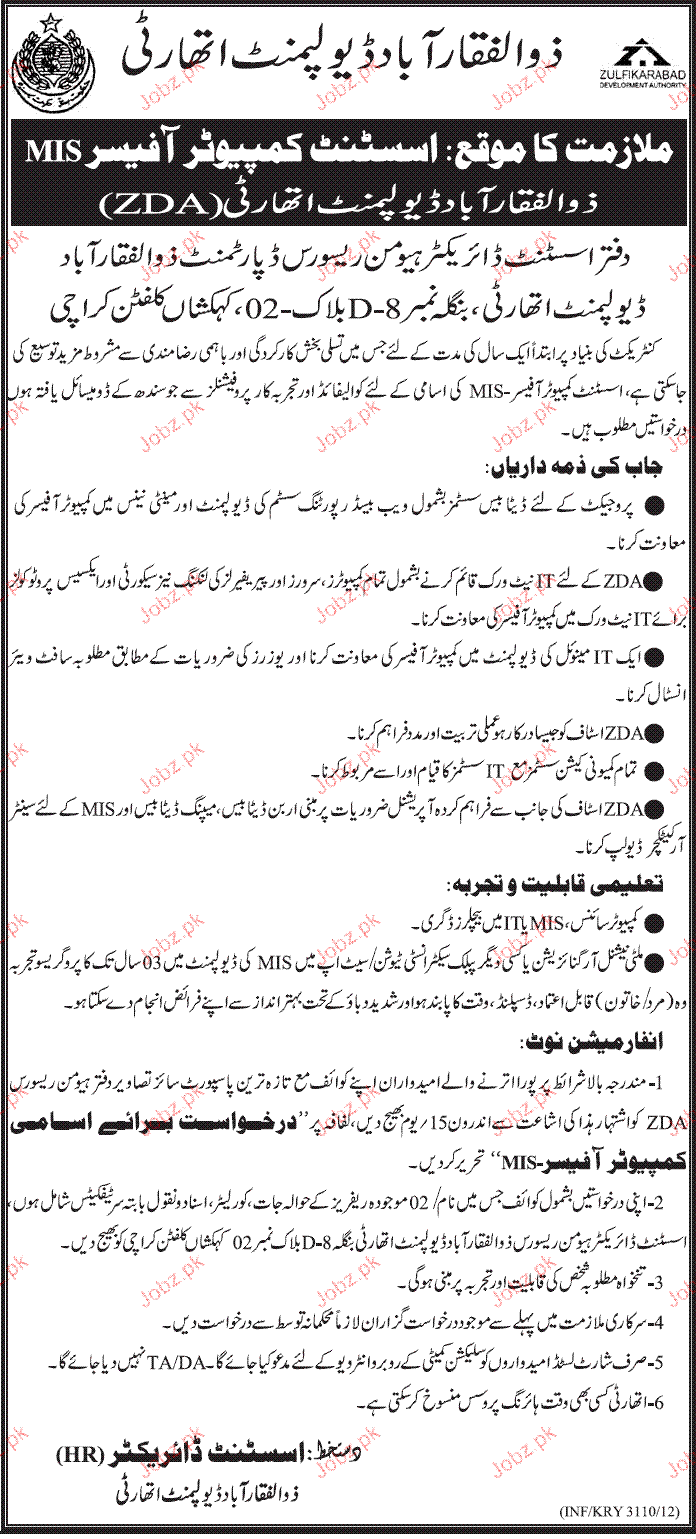 ذوالفقارآباد ڈیولپمنٹ اتھارٹی
ZULFIKARABAD
DEVELOPMENT AUTHORITY
ملازمت کا موقع: اسسٹنٹ کمپیوٹر آفیسر MIS
ذوالفقارآباد ڈیولپمنٹ اتھارٹی (ZDA)
دفتر اسسٹنٹ ڈائریکٹر ہیومن ریسورس ڈپارٹمنٹ ذوالفقارآباد
ڈیولپمنٹ اتھارٹی، بنگلہ نمبر D-8 بلاک-02، کہکشاں کلفٹن کراچی
کنٹریکٹ کی بنیاد پر ابتداً ایک سال کی مدت کے لئے جس میں تسلی بخش کارکردگی اور باہمی رضامندی سے مشروط مزید توسیع کی
جاسکتی ہے، اسسٹنٹ کمپیوٹر آفیسر-MIS کی اسامی کے لئے کوالیفائڈ اور تجربہ کار پروفیشنلز سے جو سندھ کے ڈومیسائل یافتہ ہوں
درخواستیں مطلوب ہیں۔
جاب کی ذمہ داریاں:
● پروجیکٹ کے لئے ڈیٹا بیس سسٹمز بشمول ویب بیسڈ رپورٹنگ سسٹم کی ڈیولپمنٹ اور مینٹی نینس میں کمپیوٹر آفیسر کی
معاونت کرنا۔
● ZDA کے لئے IT نیٹ ورک قائم کرنے بشمول تمام کمپیوٹرز، سرورز اور پیریفیرلز کی لنکنگ نیز سیکورٹی اور ایکسیس پروٹوکولز
برائے IT نیٹ ورک میں کمپیوٹر آفیسر کی معاونت کرنا۔
● ایک IT مینوئل کی ڈیولپمنٹ میں کمپیوٹر آفیسر کی معاونت کرنا اور یوزرز کی ضروریات کے مطابق مطلوبہ سافٹ ویئر
انسٹال کرنا۔
● ZDA اسٹاف کو جیسا درکار ہو عملی تربیت اور مدد فراہم کرنا۔
● تمام کمیونی کیشن سسٹمز مع IT سسٹمز کا قیام اور اسے مربوط کرنا۔
● ZDA اسٹاف کی جانب سے فراہم کردہ آپریشنل ضروریات پر مبنی اربن ڈیٹا بیس، میپنگ ڈیٹا بیس اور MIS کے لئے سینٹر
آرکیٹکچر ڈیولپ کرنا۔
تعلیمی قابلیت و تجربہ:
● کمپیوٹر سائنس، MIS یا IT میں بیچلرز ڈگری۔
● ملٹی نیشنل آرگنائزیشن یا کسی دیگر پبلک سیکٹر انسٹی ٹیوشن/سیٹ اپ میں MIS کی ڈیولپمنٹ میں 03 سال تک کا پروگریسو تجربہ
وہ (مرد/خاتون) قابل اعتماد، ڈسپلنڈ، وقت کا پابند ہو اور شدید دباؤ کے تحت بہتر انداز سے اپنے فرائض انجام دے سکتا ہو۔
انفارمیشن نوٹ:
1- مندرجہ بالا شرائط پر پورا اترنے والے امیدواران اپنے کوائف مع تازہ ترین پاسپورٹ سائز تصاویر دفتر ہیومن ریسورس
ZDA کو اشتہار ہذا کی اشاعت سے اندرون 15/ یوم بھیج دیں، لفافے پر "درخواست برائے اسامی
کمپیوٹر آفیسر-MIS" تحریر کردیں۔
2- اپنی درخواستیں بشمول کوائف جس میں نام/02 موجودہ ریفریز کے حوالہ جات، کور لیٹر، اسناد و نقول بابتہ سرٹیفکیٹس شامل ہوں،
اسسٹنٹ ڈائریکٹر ہیومن ریسورس ذوالفقارآباد ڈیولپمنٹ اتھارٹی بنگلہ D-8 بلاک نمبر 02 کہکشاں کلفٹن کراچی کو بھیج دیں۔
3- تنخواہ مطلوبہ شخص کی قابلیت اور تجربہ پر مبنی ہوگی۔
4- سرکاری ملازمت میں پہلے سے موجود درخواست گزاران لازماً محکمانہ توسط سے درخواست دیں۔
5- صرف شارٹ لسٹڈ امیدواروں کو سلیکشن کمیٹی کے روبرو انٹرویو کے لئے مدعو کیا جائے گا۔ TA/DA نہیں دیا جائے گا۔
6- اتھارٹی کسی بھی وقت ہائرنگ پروسس منسوخ کرسکتی ہے۔
دستخط: اسسٹنٹ ڈائریکٹر (HR)
ذوالفقارآباد ڈیولپمنٹ اتھارٹی
(INF/KRY 3110/12)